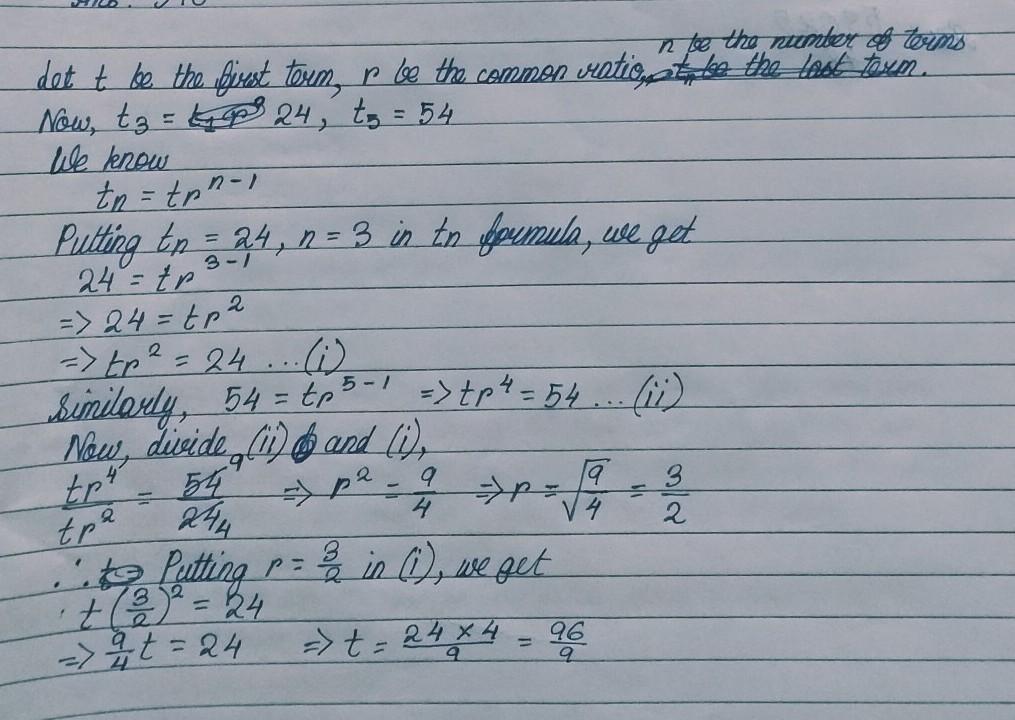 n be the number of terms
Let t be the first term, r be the common ratio, tn be the last term.
Now, t3 = 24, t5 = 54
We know
tn = tr^n-1
Putting tn = 24, n = 3 in tn formula, we get
24 = tr^3-1
=> 24 = tr^2
=> tr^2 = 24 ...(i)
Similarly, 54 = tr^5-1 => tr^4 = 54 ...(ii)
Now, divide (ii) and (i),
tr^4/tr^2 = 54 9/24 4 => r^2 = 9/4 => r = √9/4 = 3/2
∴ Putting r = 3/2 in (i), we get
t(3/2)^2 = 24
=> 9/4 t = 24 => t = 24 × 4/9 = 96/9